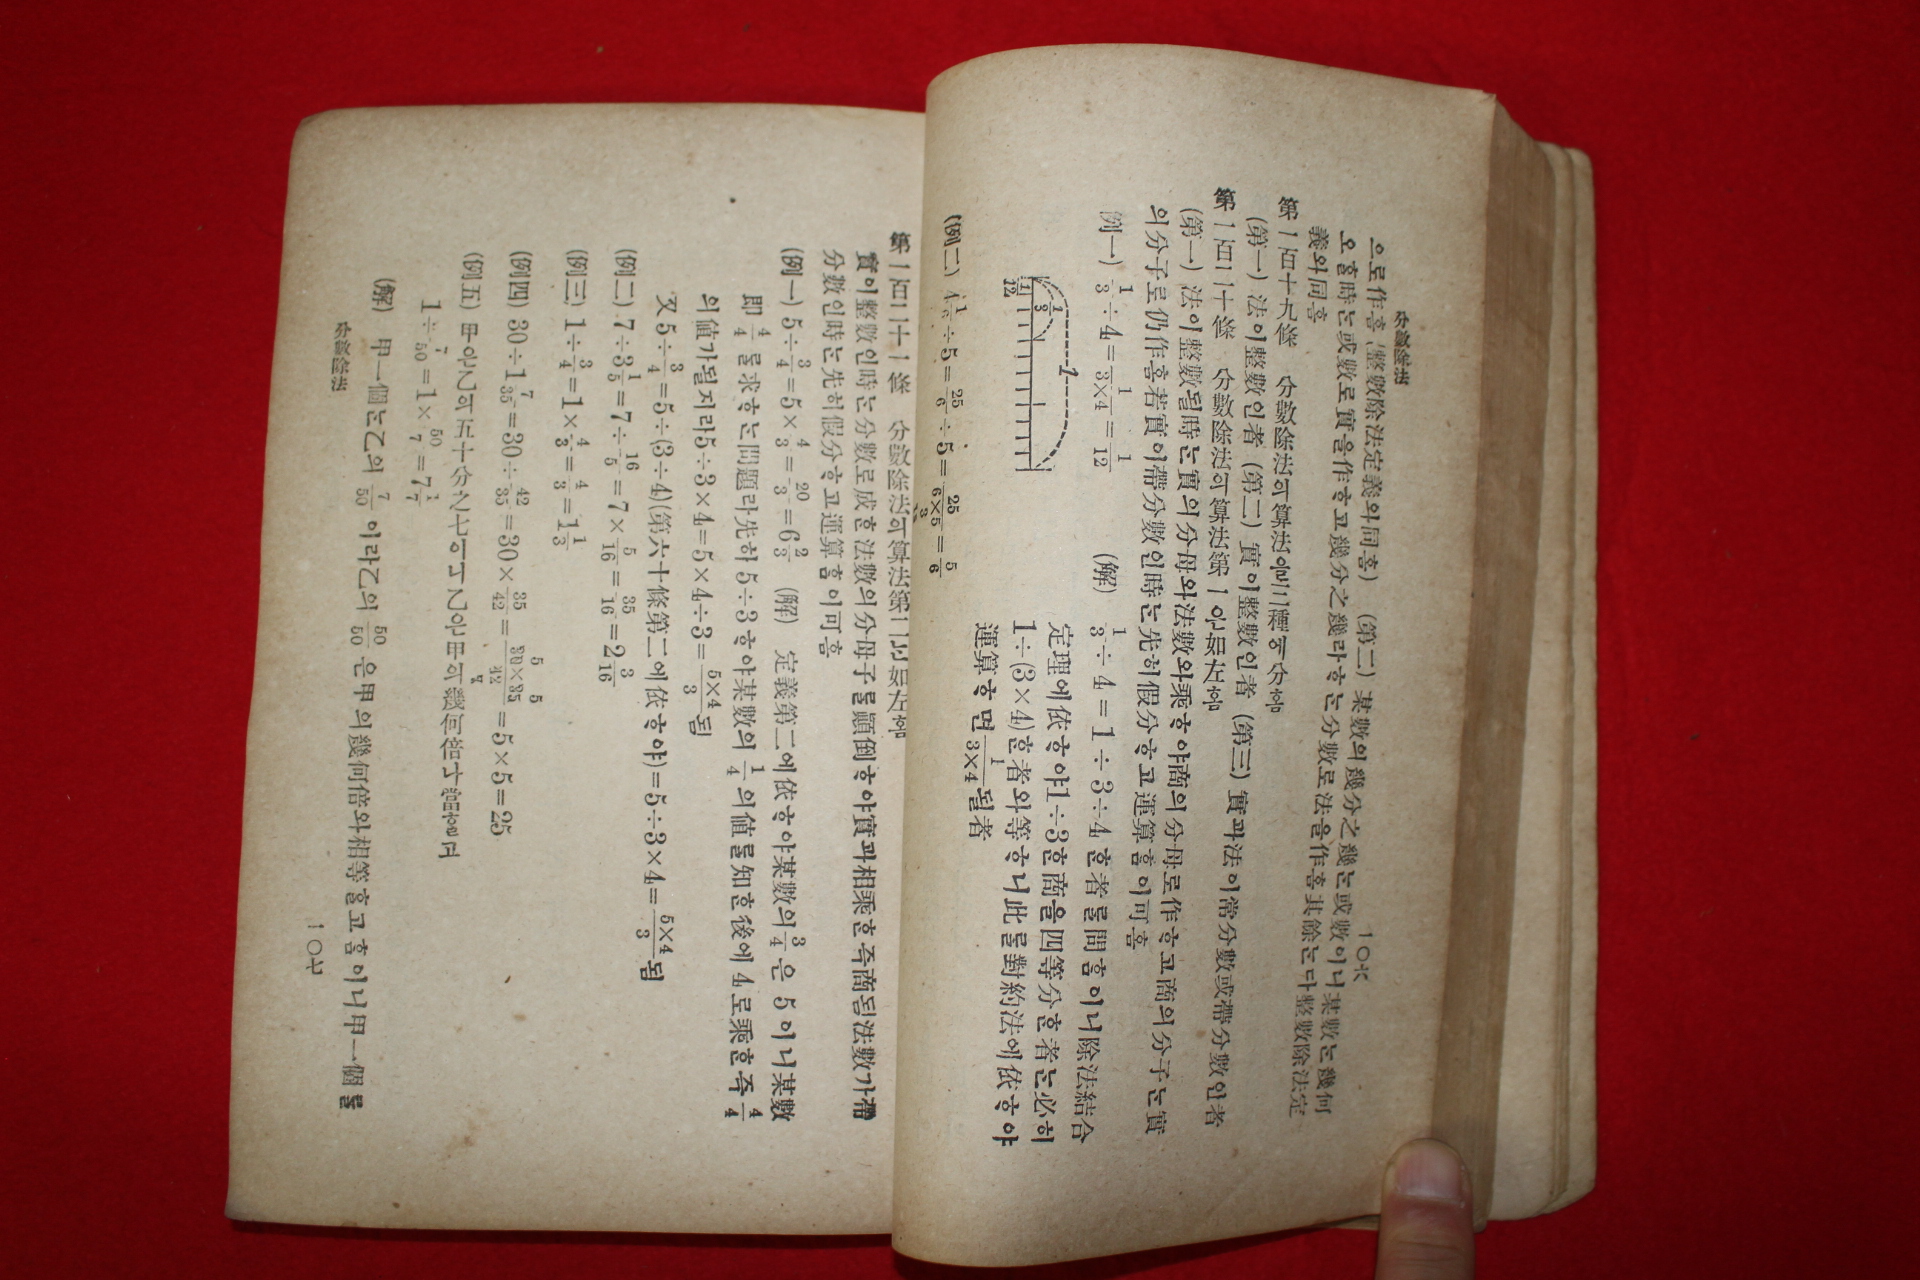 分數除法
一〇六
으로作홈 (整數除法定義와同홈) (第二) 某數의幾分之幾는或數이니某數는幾何
오홈時는或數로實을作ᄒᆞ고幾分之幾라ᄒᆞ는分數로法을作홈其餘는다整數除法定
義와同홈
第一百十九條 分數除法의算法을三種에分홈
(第一) 法이整數인者 (第二) 實이整數인者 (第三) 實과法이常分數或帶分數인者
第一百二十條 分數除法의算法第一은如左홈
(第一) 法이整數될時는實의分母와法數와乘ᄒᆞ야商의分母로作ᄒᆞ고商의分子는實
의分子로仍作홈若實이帶分數인時는先히假分ᄒᆞ고運算홈이可홈
例一) 1/3÷4=1/3×4=1/12
(解) 1/3÷4=1÷3÷4ᄒᆞᆫ者를問홈이니除法結合
定理에依ᄒᆞ야1÷3ᄒᆞᆫ商을四等分ᄒᆞᆫ者는必히
1÷(3×4)ᄒᆞᆫ者와等ᄒᆞ니此를對約法에依ᄒᆞ야
運算ᄒᆞ면1/3×4될者
1
1/3
1/12
(例二) 4 1/6÷5=25/6÷5=25/6×5=5/6
第一百二十一條 分數除法의算法第二는如左홈
實이整數인時는分數로成ᄒᆞᆫ法數의分母子를顚倒ᄒᆞ야實과相乘ᄒᆞᆫ즉商됨法數가帶
分數인時는先히假分ᄒᆞ고運算홈이可홈
(例一) 5÷3/4=5×4/3=20/3=6 2/3 (解) 定義第二에依ᄒᆞ야某數의3/4은5이니某數
即4/4를求ᄒᆞ는問題라先히5÷3ᄒᆞ야某數의1/4의値를知ᄒᆞᆫ後에4로乘ᄒᆞᆫ즉4/4
의値가될지라5÷3×4=5×4÷3=5×4/3됨
又5÷3/4=5÷(3÷4)(第六十條第二에依ᄒᆞ야)=5÷3×4=5×4/3됨
(例二) 7÷3 1/5=7÷16/5=7×5/16=35/16=2 3/16
(例三) 1÷3/4=1×4/3=4/3=1 1/3
(例四) 30÷1 7/35=30÷42/35=30×35/42=30×35/42=5×5=25
(例五) 甲은乙의五十分之七이니乙은甲의幾何倍나
1÷7/50=1×50/7=7 1/7
(解) 甲一個는乙의7/50이라乙의50/50은甲의幾何倍와相等ᄒᆞᆯ고홈이니甲一個를
分數除法
一〇七